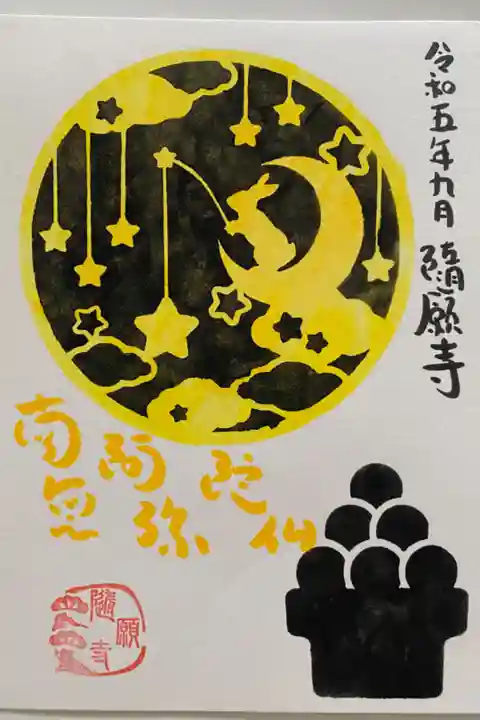 令和五年九月 隨願寺
南無
阿弥
陀仏
隨願寺